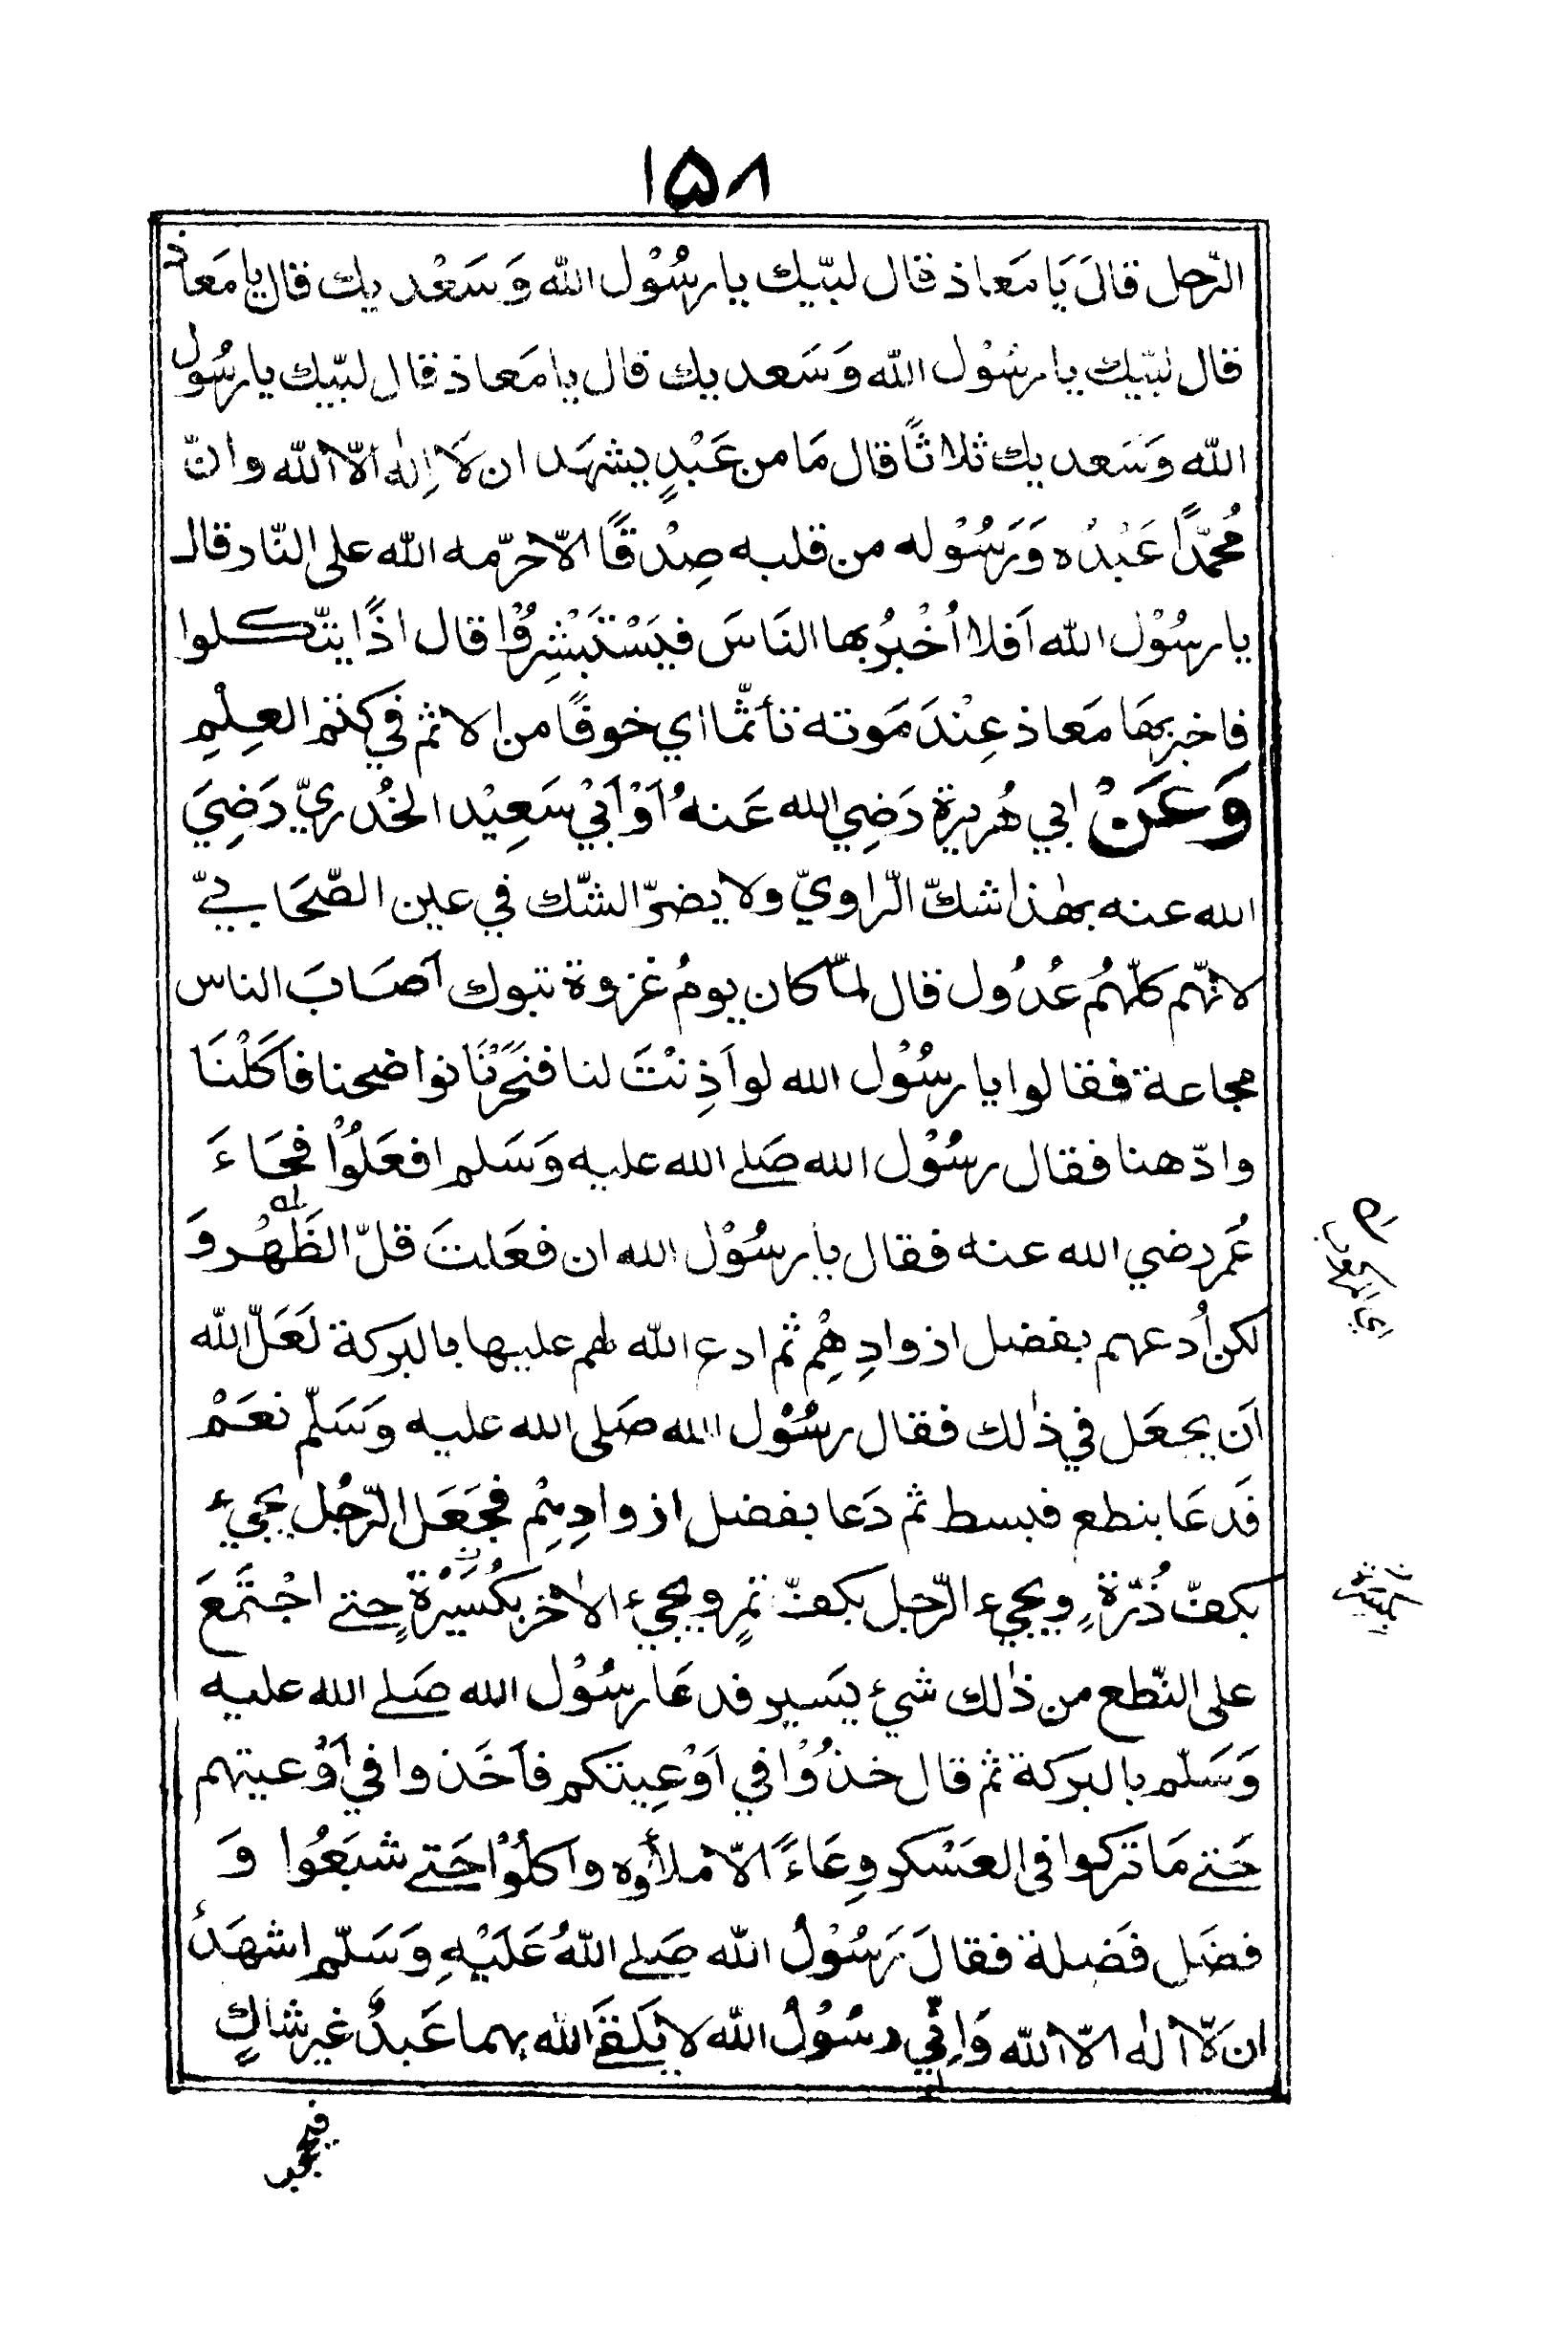 ١٥٨
الرّحل قالَ يَا مَعاذ قال لبّيك يا رسُوْل الله وَسَعْديك قال يا مَعاذ
قال لبّيك يا رسُوْل الله وَسَعديك قال يا مَعاذ قال لبّيك يا رسُول
الله وَسَعديك ثلاثًا قال مَا من عَبْدٍ يشهَد ان لَا اِلٰه الّا الله وانّ
مُحمّدًا عَبْدُه وَرَسُوْله من قلبه صِدْقًا الّا حرّمه الله على النّار قال
يا رسُوْل الله اَفلا اُخْبرُ بها النَاسَ فيَسْتَبْشِرُوْا قال اذًا يتّكلوا
فاخبر بهَا مَعاذ عِنْدَ مَوته تأثّما اي خوفًا من الاثم في كتم العِلْمِ
وَعَنْ ابي هُريرة رَضِي الله عَنهُ اَوْ اَبيْ سَعِيْد الخُدريّ رَضِيَ
الله عنه بهٰذا شكّ الرّاويّ ولا يضرّ الشّك في عين الصّحَابيّ
لانّهم كلّهُم عُدُول قال لمّا كان يومُ غزوة تبوك اَصَابَ الناس
مجاعة فقالوا يا رسُوْل الله لو اَذِنْتَ لنا فنَحَرْنَا نواضحنا فاَكَلْنَا
وادّهنا فقال رسُوْل الله صَلے الله عليه وَسَلم افعَلُوْا فجَاءَ
عُمر رضي الله عنه فقال يا رسُوْل الله ان فعَلتَ قلّ الظَهْر وَ
لكن اُدعهم بفضل ازوادِهِم ثم ادع الله لهم عليها بالبَركة لَعَلّ الله
اَن يجعَل في ذٰلك فقال رسُوْل الله صَلى الله عليه وَسَلّم نعَمْ
فَدعَا بنطع فبسط ثم دَعا بفضل ازوادِهِم فجَعَل الرّجُل يجيء
بكفّ ذُرّةٍ ويجيء الرّجل بكفّ تمرٍ ويجيء الاٰخر بكُسَيْرةٍ حتے اجْتَمعَ
على النّطع من ذٰلك شيئ يسَير فدعَا رسُوْل الله صَلے الله عليه
وَسَلّم بالبَركة ثم قال خذُوْا في اَوْعِيتكم فاَخَذوا في اَوْعيتهم
حَتے مَا تَركوا فى العَسْكر وِعَاءً الّا ملأوه واكلُوْا حَتے شبَعُوا وَ
فضَل فَضلة فقالَ رَسُوْلُ الله صَلے اللهُ عَلَيْهِ وَسَلّم اشهَدُ
ان لّا الٰه الّا الله وَاِنّي رسُوْلُ الله لا يَلقَے الله بهما عَبدٌ غير شاكٍ